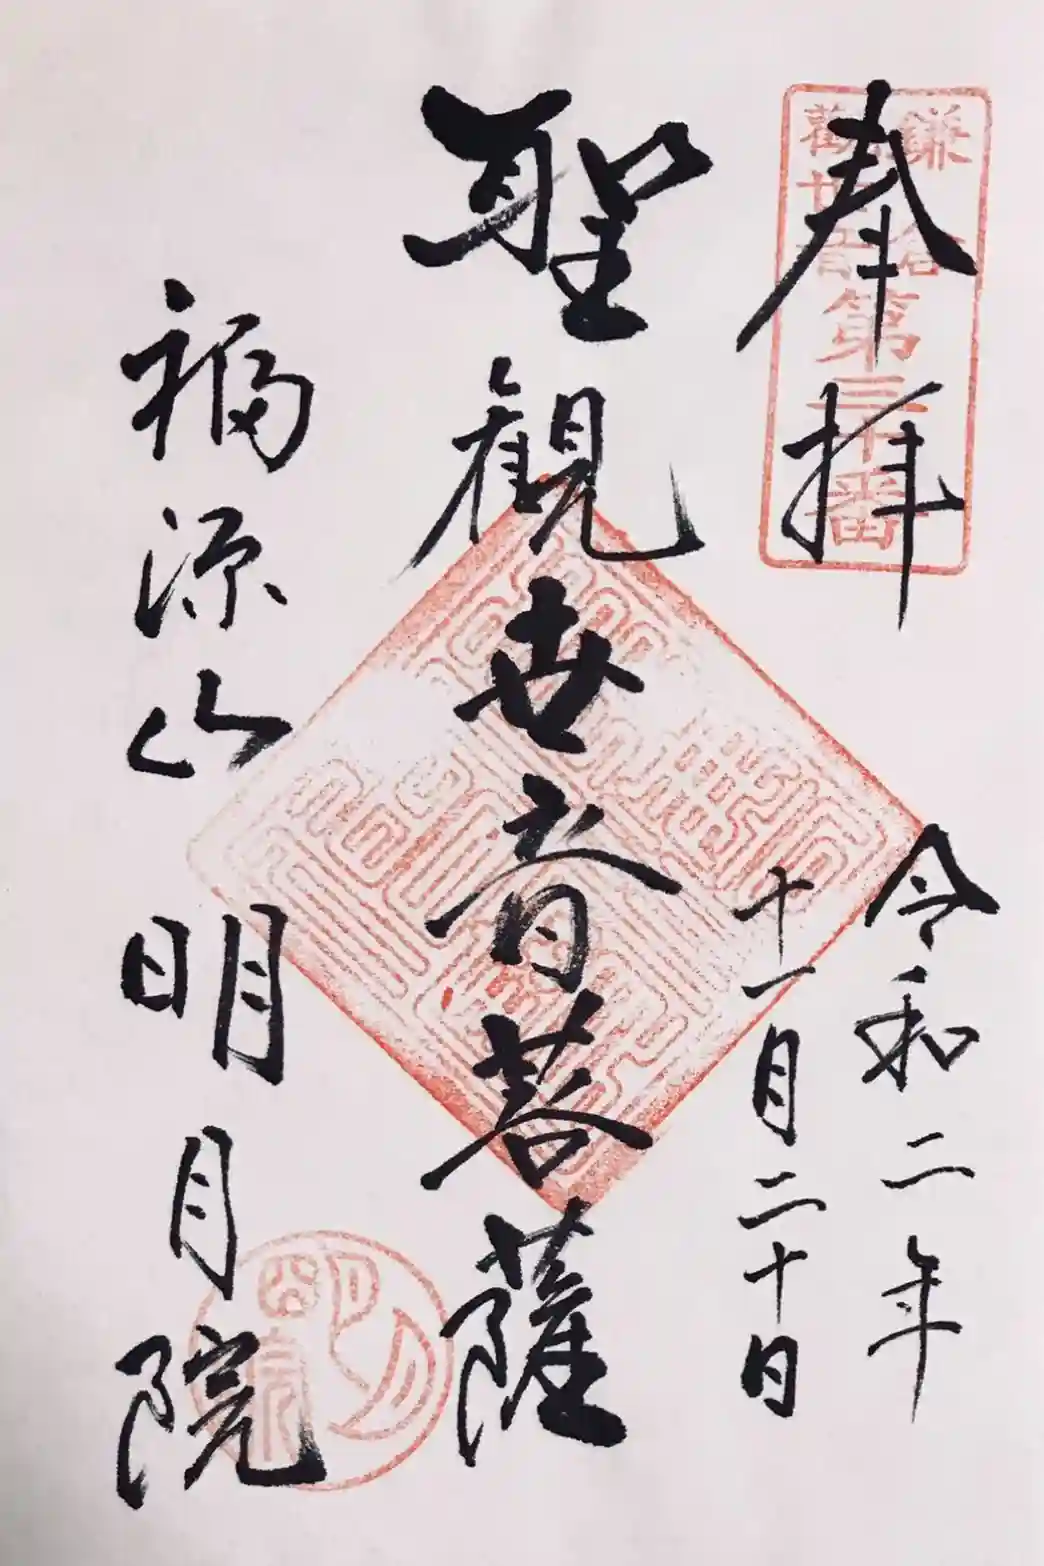 奉拝
鎌倉
觀世音
第三十番
令和二年
十一月二十日
聖觀世音菩薩
福源山明月院